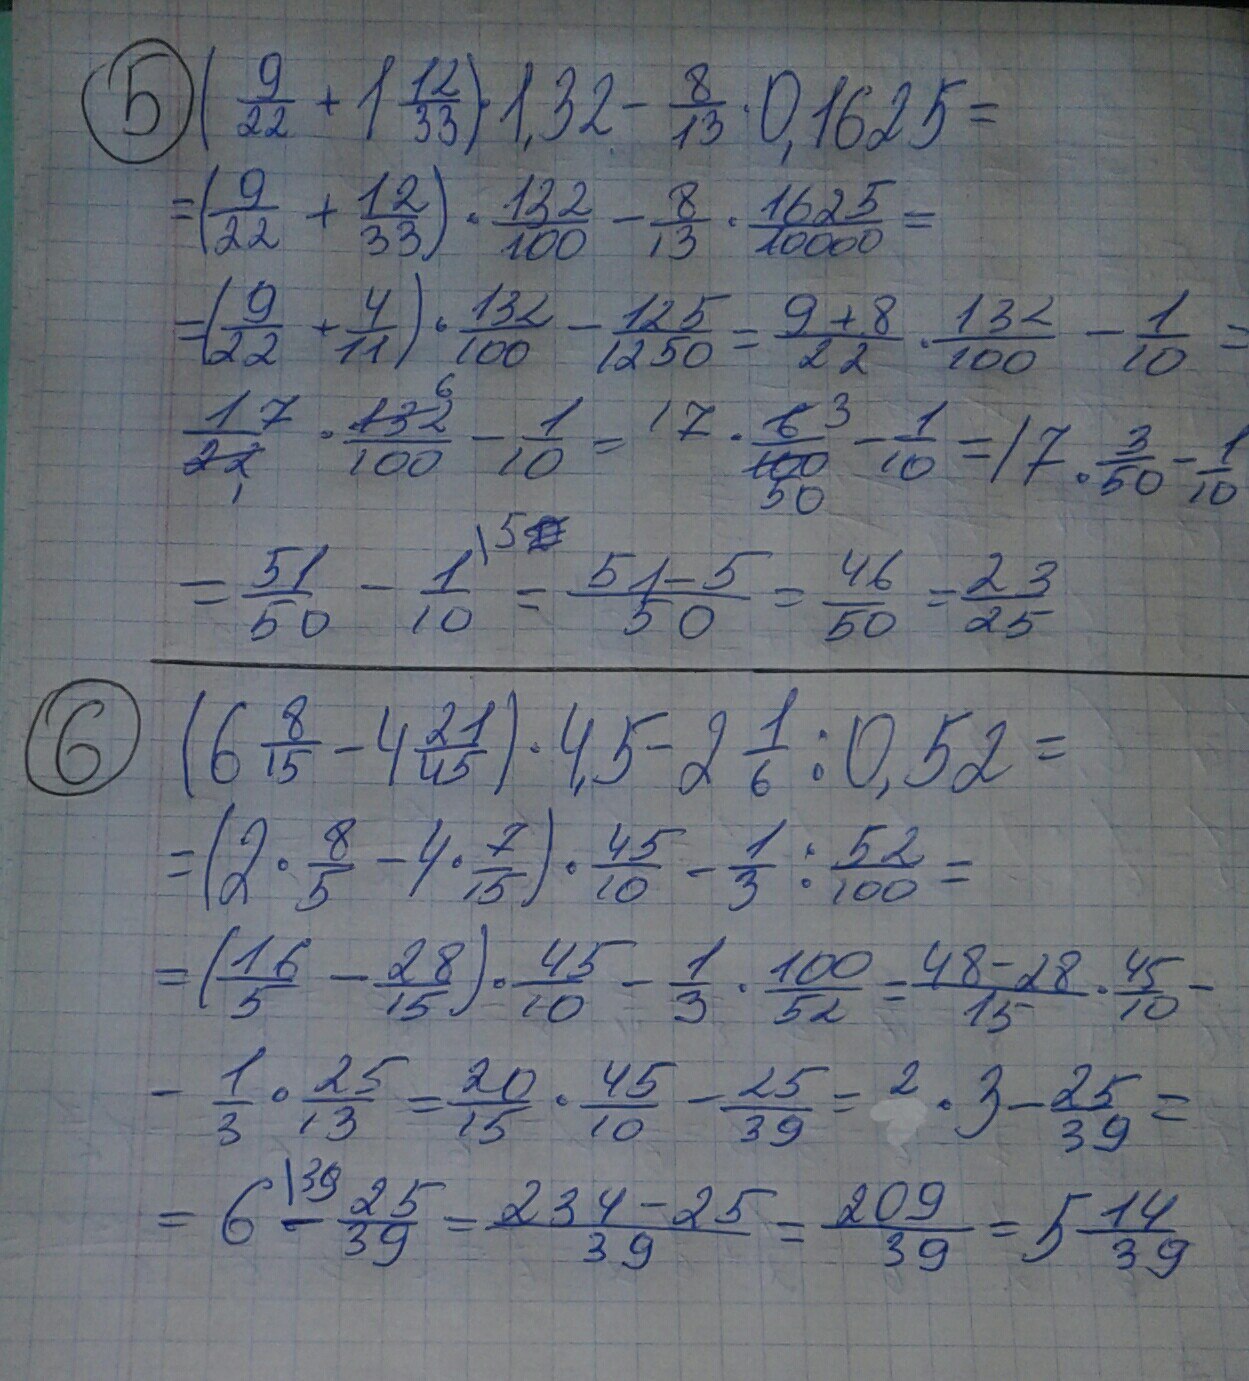 5 (9/22 + 1 12/33) · 1,32 - 8/13 · 0,1625 =
= (9/22 + 12/33) · 132/100 - 8/13 · 1625/10000 =
= (9/22 + 4/11) · 132/100 - 125/1250 = (9+8)/22 · 132/100 - 1/10 =
17/22 1 · 132 6/100 - 1/10 = 17 · 6 3/100 50 - 1/10 = 17 · 3/50 - 1/10
= 51/50 - 1/10 \5 = (51-5)/50 = 46/50 = 23/25
6 (6 8/15 - 4 21/45) · 4,5 - 2 1/6 : 0,52 =
= (2 · 8/5 - 4 · 7/15) · 45/10 - 1/3 : 52/100 =
= (16/5 - 28/15) · 45/10 - 1/3 · 100/52 = (48-28)/15 · 45/10 -
- 1/3 · 25/13 = 20/15 · 45/10 - 25/39 = 2 · 3 - 25/39 =
= 6 \39 - 25/39 = (234-25)/39 = 209/39 = 5 14/39